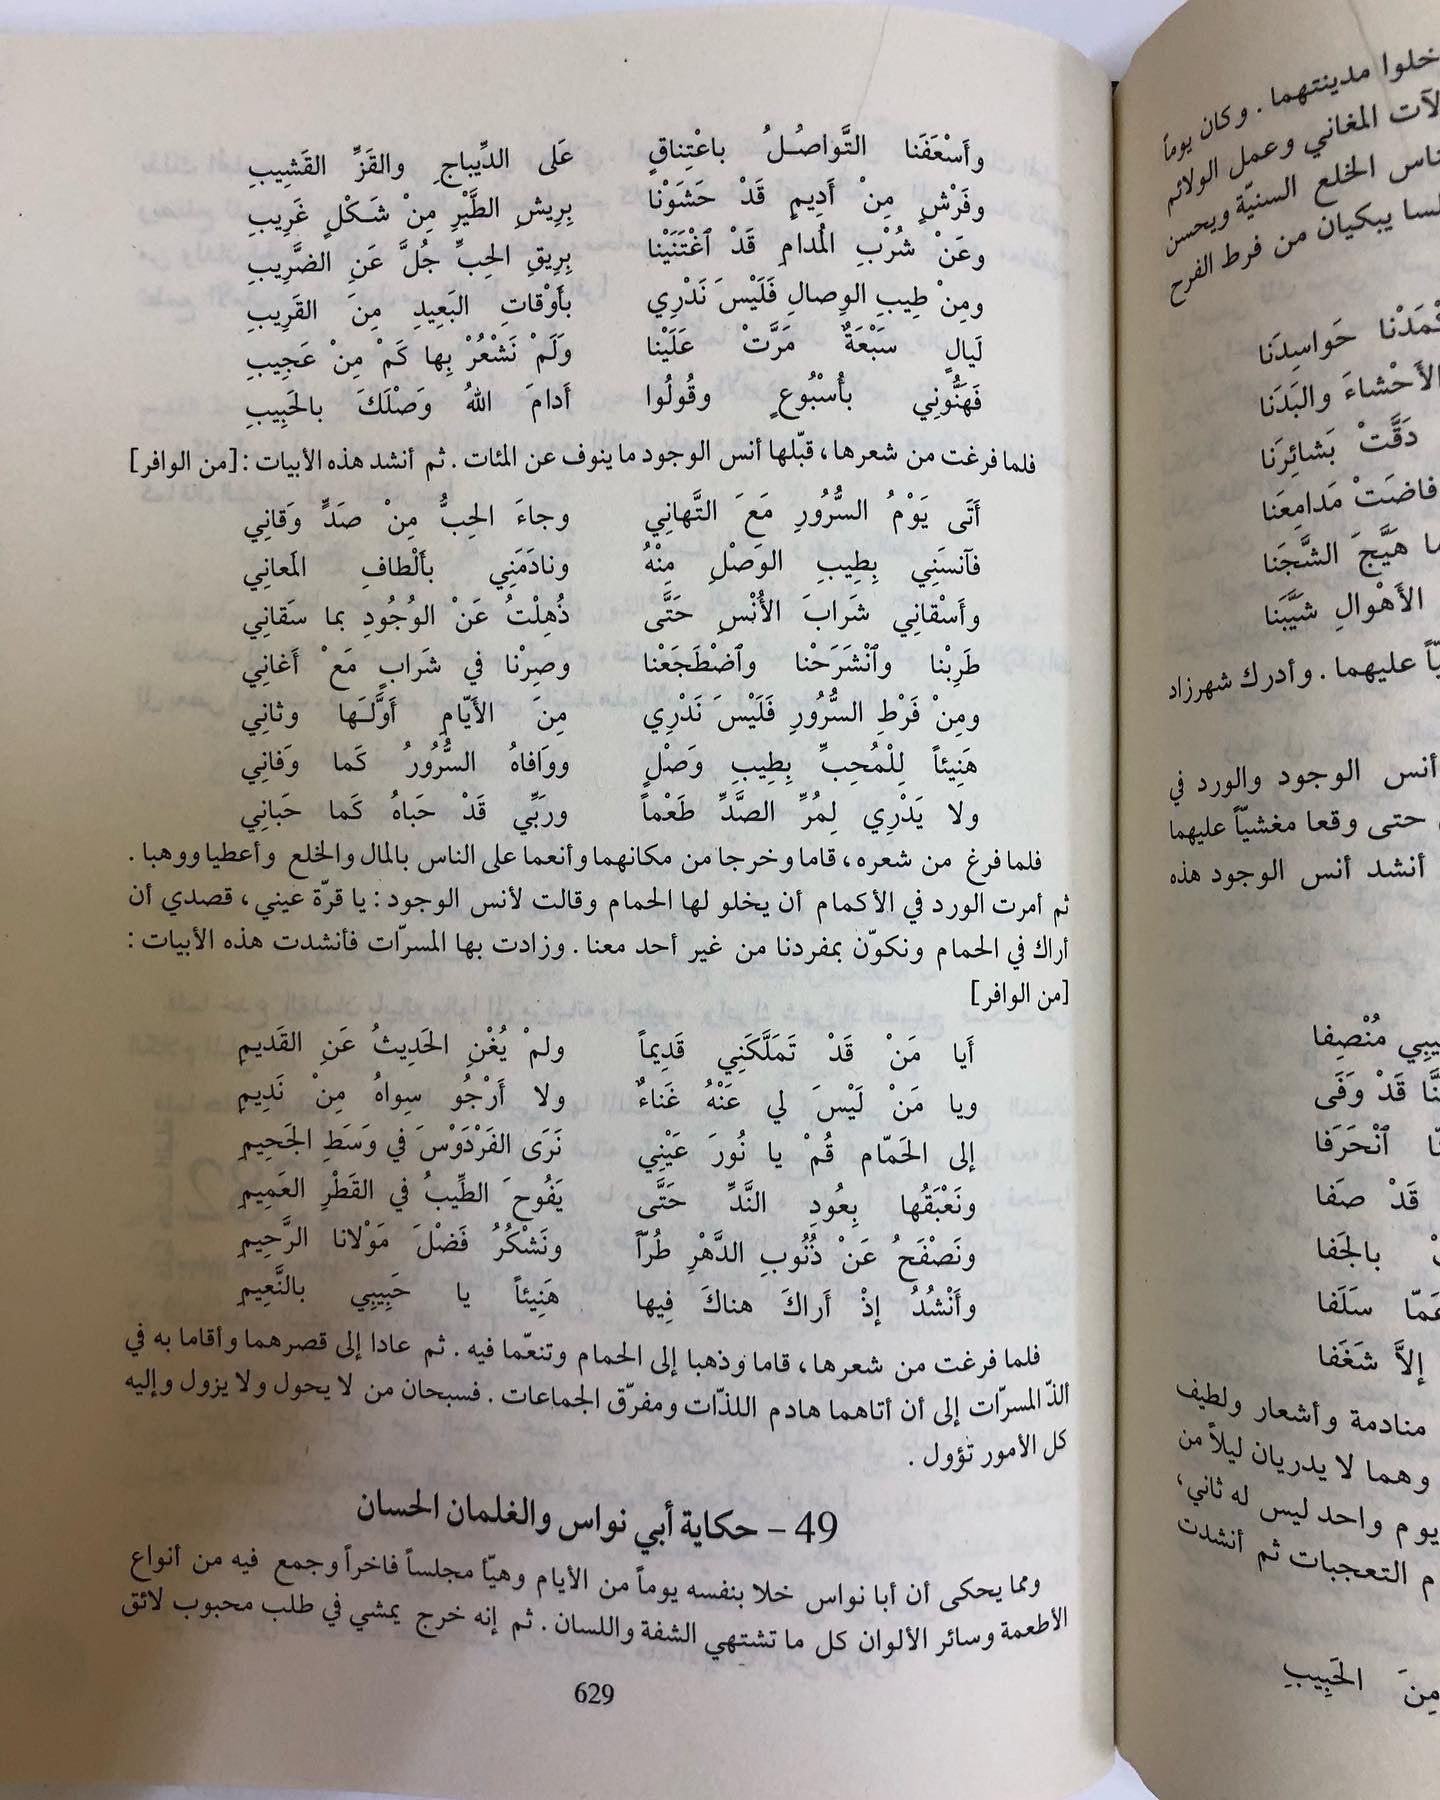 وأَسْعَفَنَا التَّواصُلُ باعْتِناقٍ عَلى الدِّيباجِ والقَزِّ القَشِيبِ
وفَرْشٍ مِنْ أَدِيمٍ قَدْ حَشَوْنا بِرِيشِ الطَّيْرِ مِنْ شَكْلٍ غَرِيبِ
وعَنْ شُرْبِ المُدامِ قَدْ ٱغْتَنَيْنا بِرِيقِ الحِبِّ جُلَّ عَنِ الضَّرِيبِ
ومِنْ طِيبِ الوِصالِ فَلَيْسَ نَدْرِي بأَوْقاتِ البَعِيدِ مِنَ القَرِيبِ
لَيالٍ سَبْعَةٌ مَرَّتْ عَلَيْنا وَلَمْ نَشْعُرْ بِها كَمْ مِنْ عَجِيبِ
فَهَنُّونِي بأُسْبُوعٍ وقُولُوا أَدامَ اللهُ وَصْلَكَ بالحَبِيبِ
فلما فرغت من شعرها، قبّلها أنس الوجود ما ينوف عن المئات. ثم أنشد هذه الأبيات: [من الوافر]
أَتَى يَوْمُ السُّرُورِ مَعَ التَّهانِي وجاءَ الحِبُّ مِنْ صَدٍّ وَقانِي
فآنسَنِي بِطِيبِ الوَصْلِ مِنْهُ ونادَمَنِي بأَلْطافِ المَعانِي
وأَسْقانِي شَرابَ الأُنْسِ حَتَّى ذُهِلْتُ عَنْ الوُجُودِ بما سَقانِي
طَرِبْنا وٱنْشَرَحْنا وٱضْطَجَعْنا وصِرْنا في شَرابٍ مَعْ أَغانِي
ومِنْ فَرْطِ السُّرُورِ فَلَيْسَ نَدْرِي مِنَ الأَيّامِ أَوَّلَها وثانِي
هَنِيئاً لِلْمُحِبِّ بِطِيبِ وَصْلٍ ووَافاهُ السُّرُورُ كَما وَفانِي
ولا يَدْرِي لِمُرِّ الصَّدِّ طَعْماً ورَبِّي قَدْ حَباهُ كَما حَبانِي
فلما فرغ من شعره، قاما وخرجا من مكانهما وأنعما على الناس بالمال والخلع وأعطيا ووهبا.
ثم أمرت الورد في الأكمام أن يخلو لها الحمام وقالت لأنس الوجود: يا قرّة عيني، قصدي أن
أراك في الحمام ونكوّن بمفردنا من غير أحد معنا. وزادت بها المسرّات فأنشدت هذه الأبيات:
[من الوافر]
أَيا مَنْ قَدْ تَمَلَّكَنِي قَدِيماً ولمْ يُغْنِ الحَدِيثُ عَنِ القَدِيمِ
ويا مَنْ لَيْسَ لي عَنْهُ غَناءٌ ولا أَرْجُو سِواهُ مِنْ نَدِيمِ
إلى الحَمّامِ قُمْ يا نُورَ عَيْنِي نَرَى الفَرْدَوْسَ في وَسَطِ الجَحِيمِ
ونَعْبَقُها بِعُودِ النَّدِّ حَتَّى يَفُوحَ الطِّيبُ في القَطْرِ العَمِيمِ
ونَصْفَحُ عَنْ ذُنُوبِ الدَّهْرِ طُرّاً ونَشْكُرُ فَضْلَ مَوْلانا الرَّحِيمِ
وأَنْشُدُ إذْ أَراكَ هناكَ فِيها هَنِيئاً يا حَبِيبِي بالنَّعِيمِ
فلما فرغت من شعرها، قاما وذهبا إلى الحمام وتنعّما فيه. ثم عادا إلى قصرهما وأقاما به في
ألذّ المسرّات إلى أن أتاهما هادم اللذّات ومفرّق الجماعات. فسبحان من لا يحول ولا يزول وإليه
كل الأمور تؤول.
49 - حكاية أبي نواس والغلمان الحسان
ومما يحكى أن أبا نواس خلا بنفسه يوماً من الأيام وهيّأ مجلساً فاخراً وجمع فيه من أنواع
الأطعمة وسائر الألوان كل ما تشتهي الشفة واللسان. ثم إنه خرج يمشي في طلب محبوب لائق
629
خلوا مدينتهما. وكان يوماً
لآت المغاني وعمل الولائم
ناس الخلع السنيّة ويحسن
لسا يبكيان من فرط الفرح
حَواسِدَنا
الأَحْشاءَ والبَدَنا
دَقَّتْ بَشائِرَنا
فاضَتْ مَدامِعَنا
هَيَّجَ الشَّجَنا
الأَهْوالِ شَيَّبَنا
عليهما. وأدرك شهرزاد
أنس الوجود والورد في
حتى وقعا مغشيّاً عليهما
أنشد أنس الوجود هذه
مُنْصِفا
قَدْ وَفَى
ٱنْحَرَفا
قَدْ صَفا
بالجَفا
سَلَفا
إلاَّ شَغَفا
منادمة وأشعار ولطيف
وهما لا يدريان ليلاً من
يوم واحد ليس له ثاني،
م التعجبات ثم أنشدت
مِنَ الحَبِيبِ